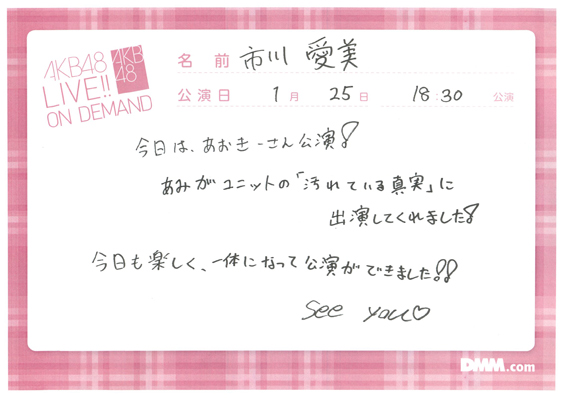 AKB48
LIVE!!
ON DEMAND
AKB
48
名 前 市川 愛美
公演日 1月 25日 18:30 公演
今日は、あおきーさん公演!
あみがユニットの「汚れている真実」に
出演してくれました!
今日も楽しく、一体になって公演ができました!!
See you♡
DMM.com